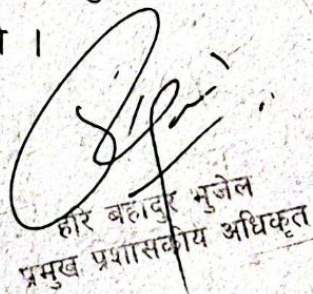 ।
हरि बहादुर भुजेल
प्रमुख प्रशासकीय अधिकृत